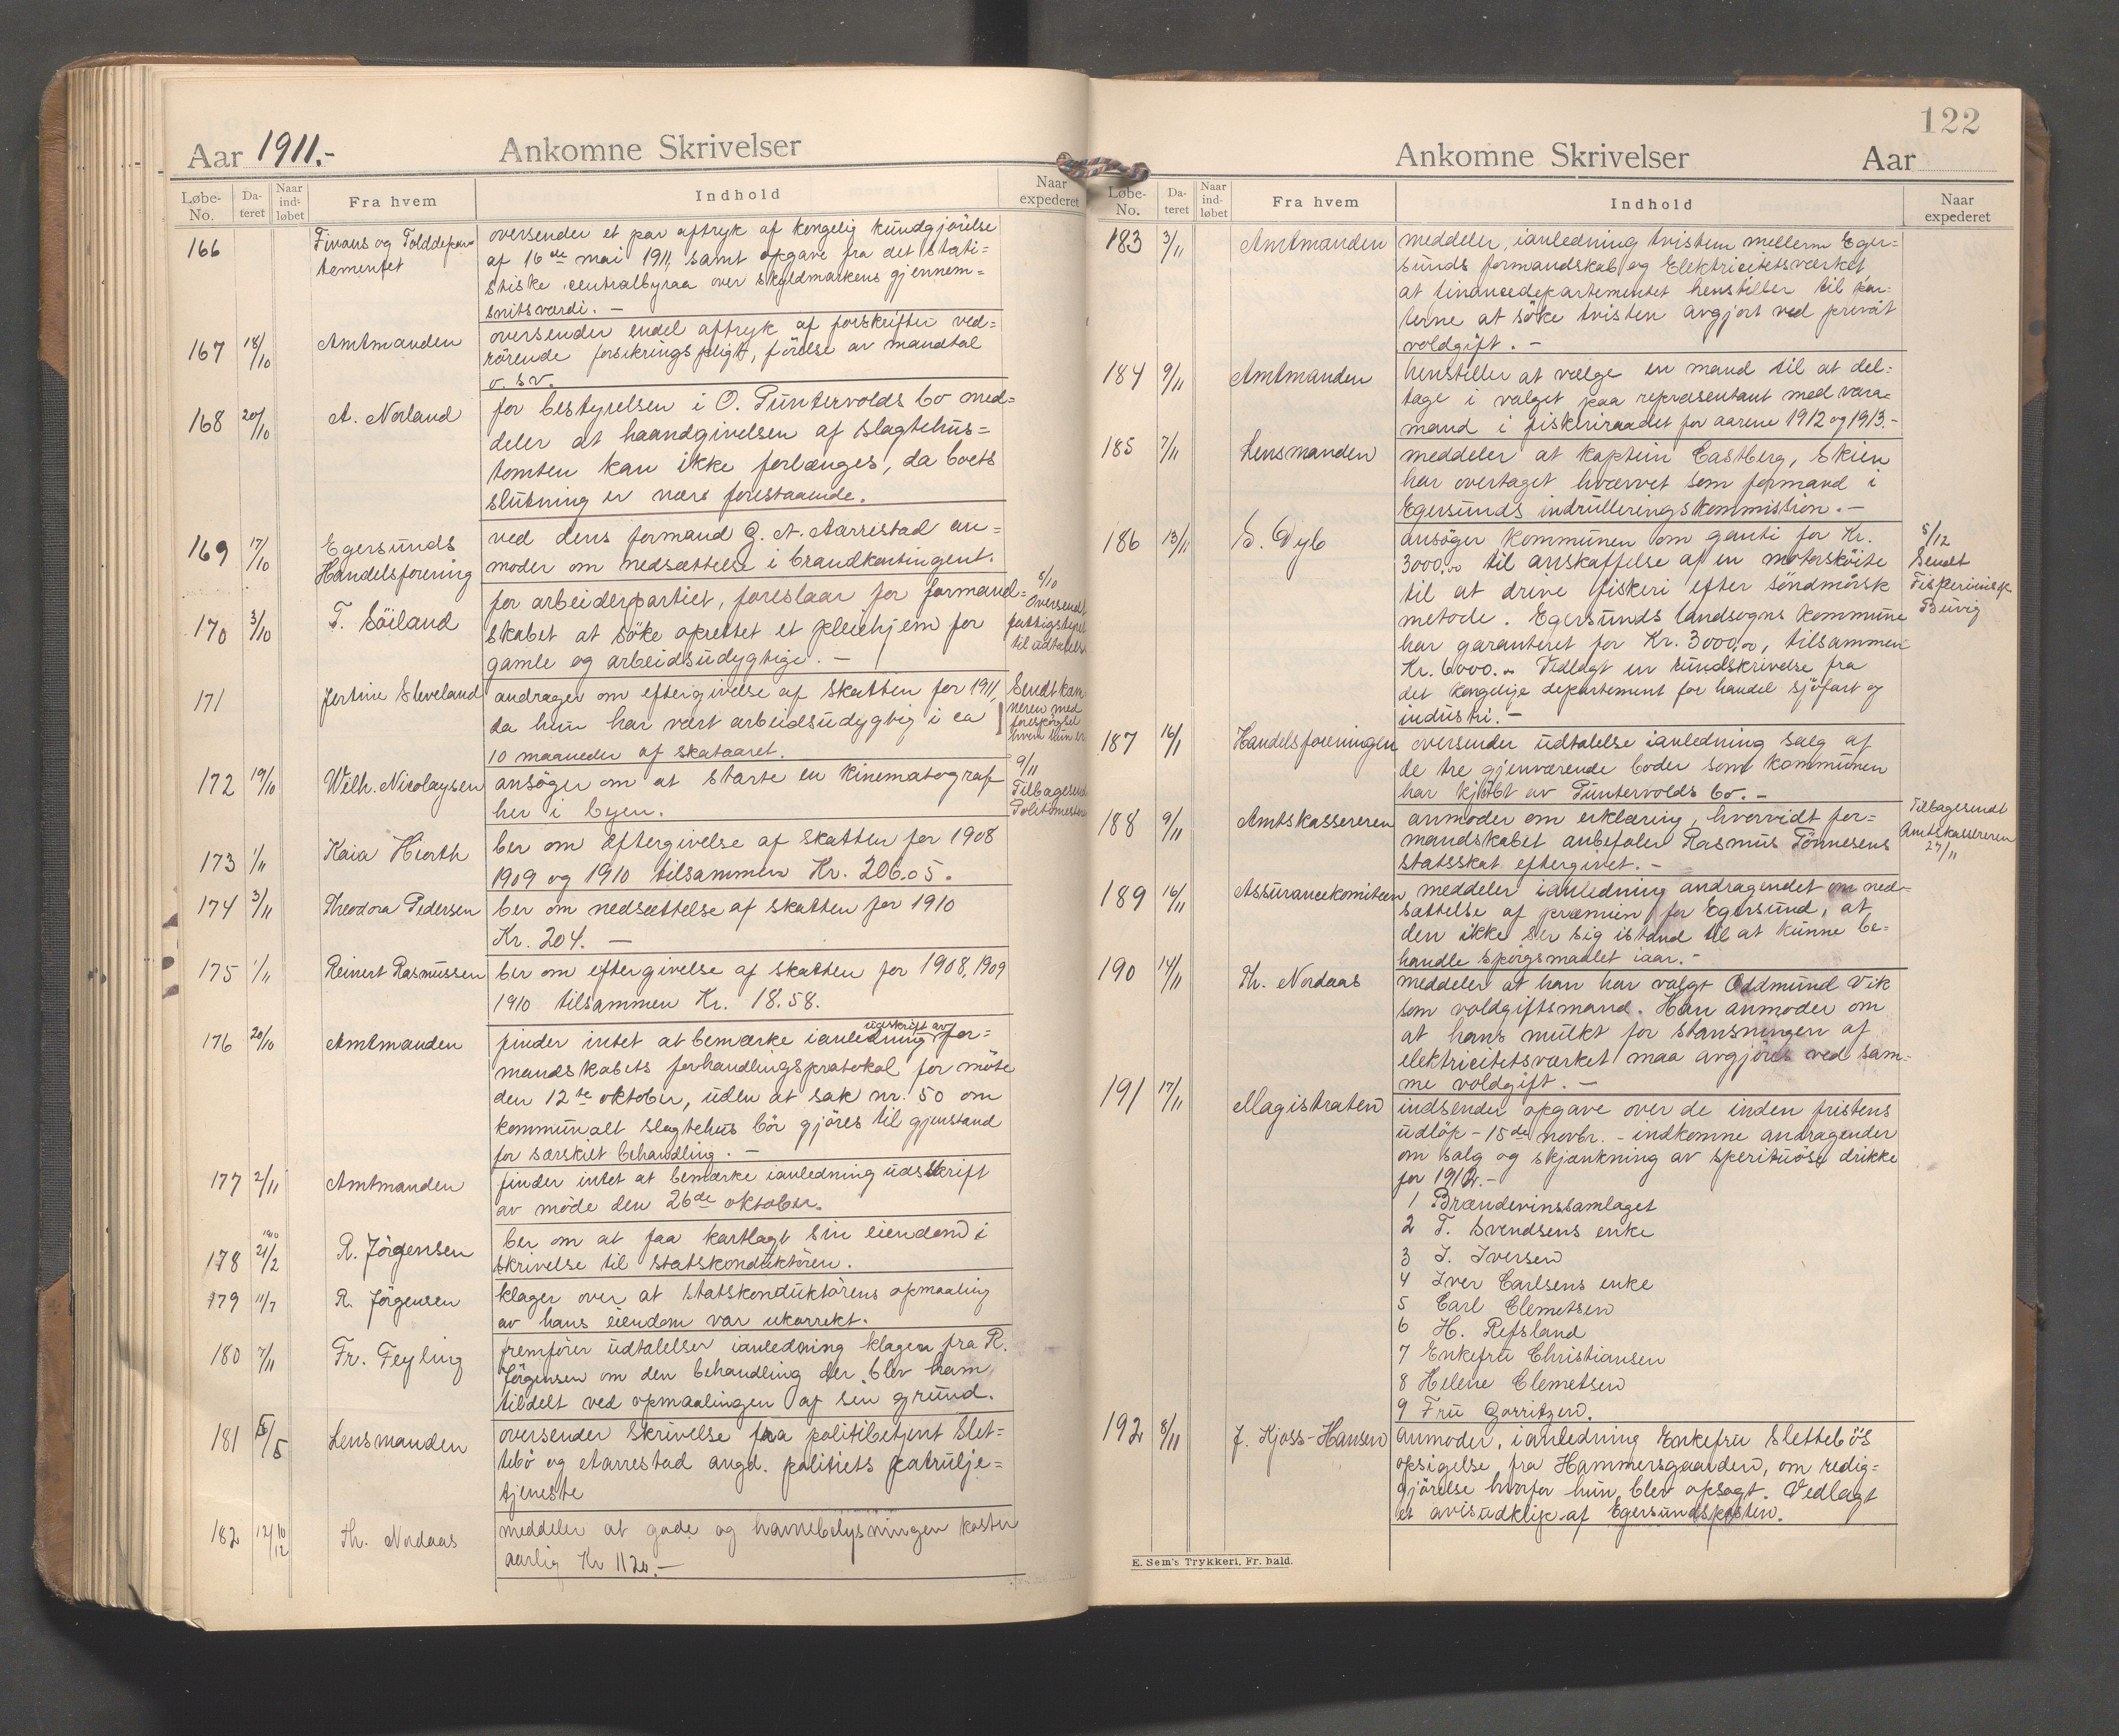 Aar 1911.-
Ankomne Skrivelser
Løbe-No.
Da-teret
Naar ind-løbet
Fra hvem
Indhold
Naar expederet
166 Finans og Tolddepar-
tementet
oversender et par aftryk af kongelig kundgjörelse
af 16de mai 1911, samt opgave fra det stati=
stiske centralbyraa over skyldmarkens gjennem=
snitsværdi. -
167 18/10 Amtmanden
oversender endel aftryk af forskrifter ved=
rörende forsikringspligt, förelse av mandtal
o. s v.
168 20/10 A. Norland
for bestyrelsen i O. Puntervolds bo med=
deler at haandgivelsen af slagtehus=
tomten kan ikke forlænges, da boets
slutning er nære forestaaende.
169 17/10 Egersunds
Handelsforening
ved dens formand G. A. Aarrestad an=
moder om nedsættelse i brandkontingent.
170 3/10 T. Söiland
for arbeiderpartiet, foreslaar for formand=
skabet at söke oprettet et pleiehjem for
gamle og arbeidsudygtige. -
5/10
Oversendt
fattigstyret
til udtalelse
171 Jertine Sleveland
andrager om eftergivelse af skatten for 1911,
da hun har vært arbeidsudygtig i ca
10 maaneder af skataaret.
Sendt kæm-
neren med
forespörgsel
hvem hun er
172 19/10 Wilh. Nicolaysen
ansöger om at starte en kinematograf
her i byen.
9/11
Tilbagesendt
Politimester
173 1/11 Kaia Hiorth
ber om eftergivelse af skatten for 1908
1909 og 1910 tilsammen Kr. 206.05.
174 3/11 Theodora Pedersen
ber om nedsættelse af skatten for 1910
Kr. 204. -
175 1/11 Reinert Rasmussen
ber om eftergivelse af skatten for 1908, 1909
1910 tilsammen Kr. 18.58.
176 20/10 Amtmanden
finder intet at bemærke ianledning udskrift av for=
mandskabets forhandlingsprotokol for möte
den 12te oktober, uden at sak nr. 50 om
kommunalt slagtehus bör gjöres til gjenstand
for særskilt behandling. -
177 2/11 Amtmanden
finder intet at bemærke ianledning udsskrift
av möde den 26de oktober.
178 1910 21/2 R. Jörgensen
ber om at faa kartlagt sin eiendom i
skrivelse til statskonduktören.
179 11/7 R. Jörgensen
klager over at statskonduktörens opmaaling
av hans eiendom var ukorrekt.
180 7/11 Fr. Feyling
fremförer udtalelser ianledning klagen fra R.
Jörgensen om den behandling der blev ham
tildelt ved opmaalingen af sen grund.
181 5/5 Lensmanden
oversender skrivelse fra politibetjent Slet=
tebö og Aarrestad angd. politiets patrulje=
tjeneste
182 12/10 12 Th. Nordaas
meddeler at gade og havnebelysningen koster
aarlig Kr 1120.-
122
Ankomne Skrivelser
Aar
Løbe-No.
Da-teret
Naar ind-løbet
Fra hvem
Indhold
Naar expederet
183 3/11 Amtmanden
meddeler, ianledning tvisten mellem Eger=
sunds formandskab og Elektricitetsværket,
at finansdepartementet henstiller til par=
terne at söke tvisten avgjort ved privat
voldgift. -
184 9/11 Amtmanden
henstiller at vælge en mand til at del=
tage i valget paa repræsentant med vara=
mand i fiskeriraadet for aarene 1912 og 1913.-
185 7/11 Lensmanden
meddeler at kaptein Eastberg, Skien
har overtaget hvervet som formand i
Egersunds indrulleringskommission. -
186 13/11 S. Dyb
ansöger kommunen om ganti for Kr.
3000,00 til anskaffelse af en motorsköite
til at drive fiskeri efter söndmörsk
metode. Egersunds landsogns kommune
har garanteret for Kr. 3000,00, tilsammen
Kr. 6000.- Vedlagt en rundskrivelse fra
det kongelige departement for handel sjöfart og
industri. -
5/12
Sendt
Fiskeriinsp.
Buvig
187 16/1 Handelsforeningen
oversender udtalelse ianledning salg af
de tre gjenværende boder som kommunen
har kjöbt av Puntervolds bo. -
188 9/11 Amtskassereren
anmoder om erklæring, hvorvidt for=
mandskabet anbefaler Rasmus Tönnesens
statsskat eftergivet. -
Tilbagesendt
Amtskassereren
27/11
189 16/11 Assurancekomiteen
meddeler ianledning andragendet om ned-
sættelse af præmien for Egersund, at
den ikke ser sig istand til at kunne be=
handle spörgsmaalet iaar. -
190 14/11 Th. Nordaas
meddeler at han har valgt Oddmund Vik
som voldgiftsmand. Han anmoder om
at hans mulkt for stansningen af
elektricitetsværket maa avgjöres ved sam-
me voldgift. -
191 17/11 Magistraten
indsender opgave over de inden fristens
udlöp - 15de novbr. - indkomne andragender
om salg og skjænkning av sperituose drikke
for 1912. -
1 Brændevinssamlaget
2 T. Svendsens enke
3 I. Iversen
4 Iver Carlsens enke
5 Carl Clemetsen
6 H. Refsland
7 Enkefru Christiansen
8 Helene Clemetsen
9 Fru Gorritzen.
192 8/11 J. Kjoss-Hansen
anmoder, ianledning Enkefru Slettebös
opsigelse fra Hammersgaarden, om redig=
gjörelse hvorfor hun blev opsagt. Vedlagt
et avisudklip af Egersundsposten.
E. Sem's Trykkeri, Fr. hald.